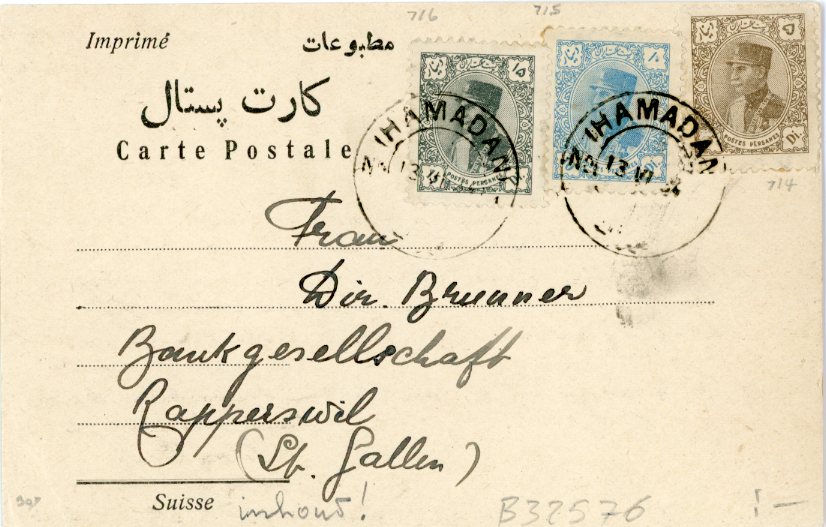 716
715
Imprimé
مطبوعات
کارت پستال
Carte Postale
۱۵
۱۰
۵
POSTES PERSANES
Di.
714
HAMADAN
13 VI
HAMADAN
13 VI 34
Frau
Dir. Brunner
Bankgesellschaft
Rapperswil
(St. Gallen)
Suisse
inhoud!
B32576